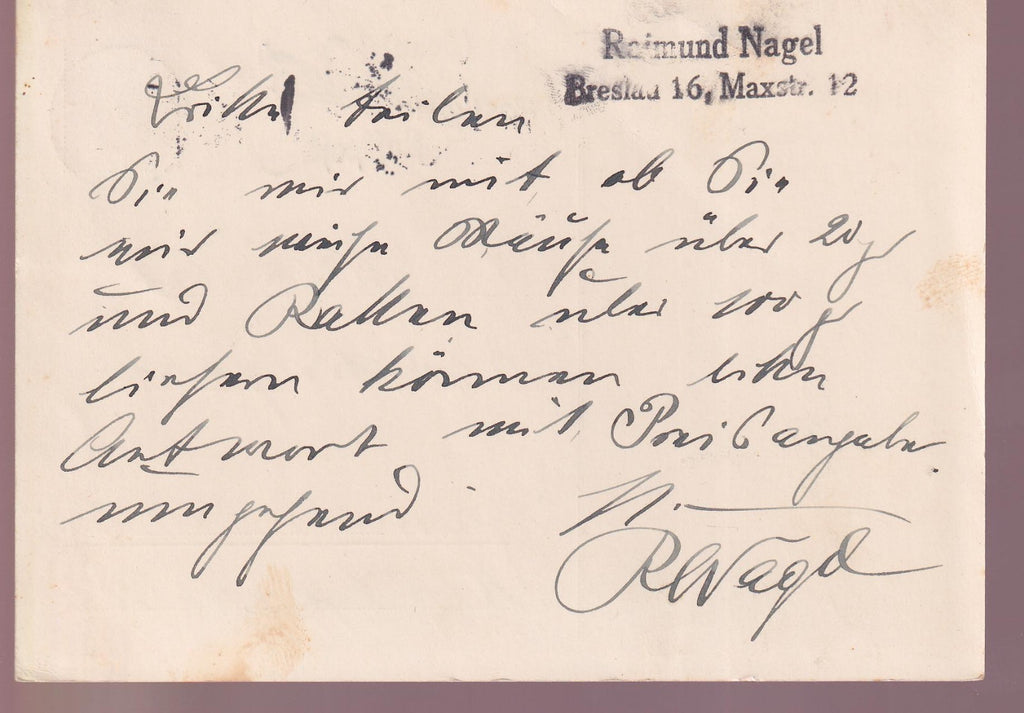 Raimund Nagel
Breslau 16, Maxstr. 12
Bitte teilen
Sie mir mit, ob Sie
mir weiße Mäuse über 20 gr
und Ratten über 100 gr
liefern können bitte
Antwort mit Preisangabe.
umgehend
R Nagel